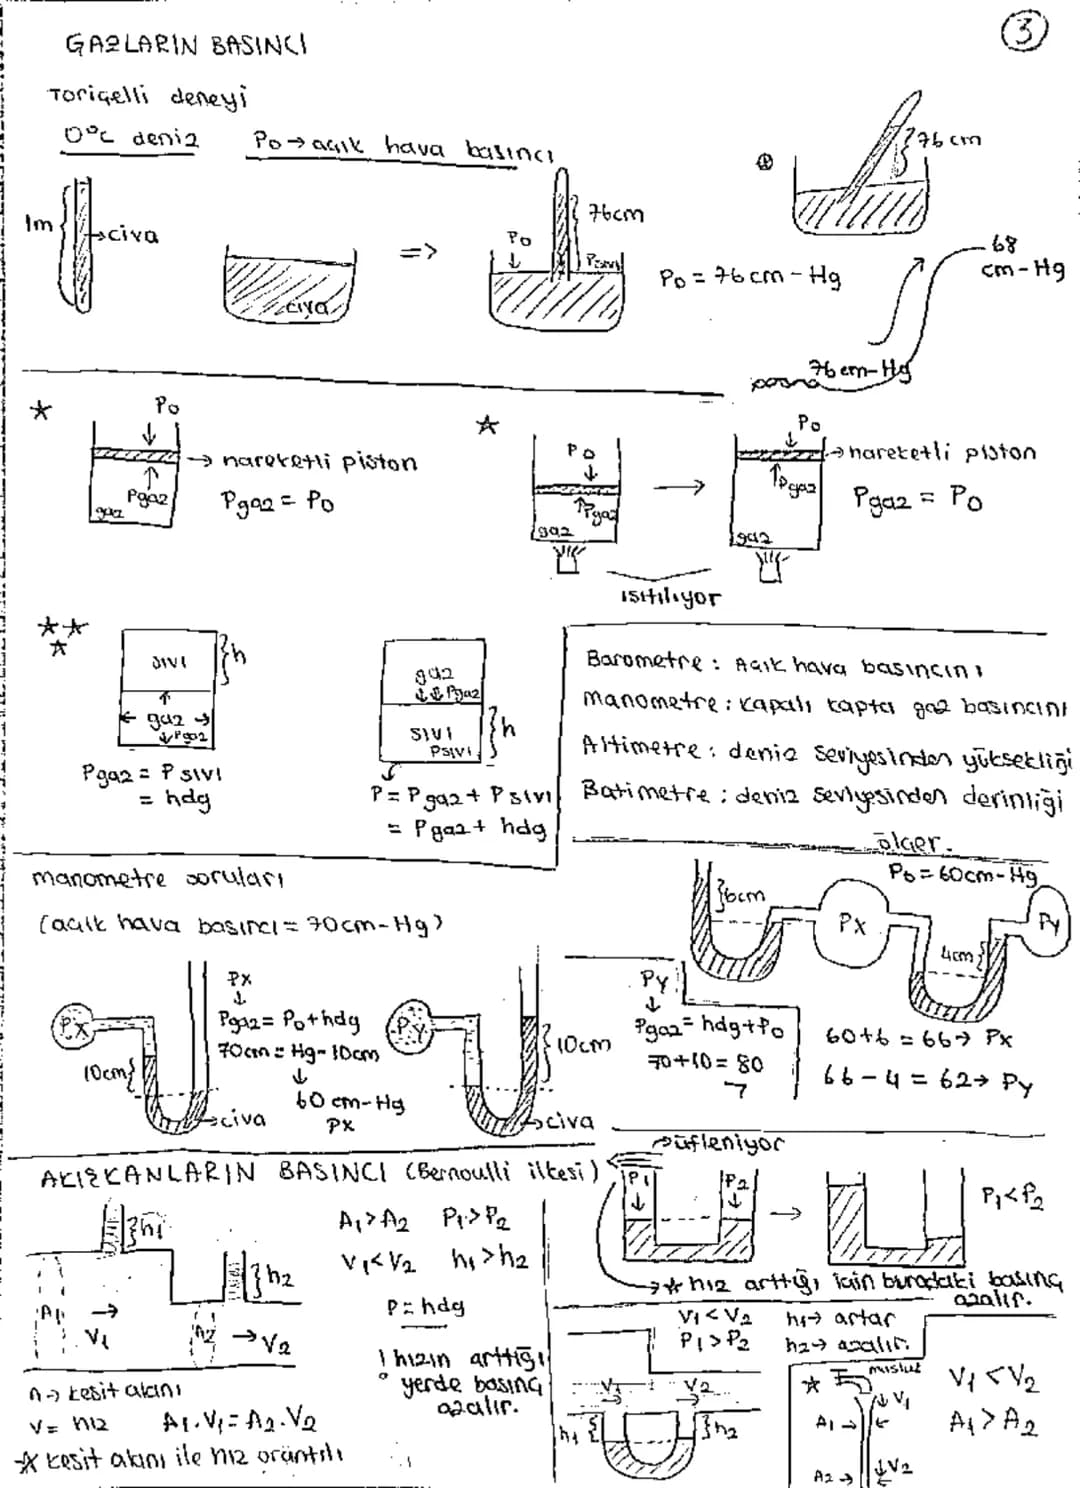 3
GAZLARIN BASINCI
Toriçelli deneyi
0°C deniz
Po → açık hava basıncı
1m
civa
civa
=>
Po
76cm
Psıvı
76 cm
Po = 76 cm - Hg
68
cm-Hg
76 cm-Hg
Po
hareketli piston
Pgaz
gaz
Pgaz = Po
Po
Pgaz
gaz
→
Po
hareketli piston
Pgaz
gaz
Pgaz = Po
ısıtılıyor
sıvı
h
gaz
Pgaz
Pgaz = Psıvı
= hdg
gaz
Pgaz
sıvı
Psıvı
h
P = Pgaz + Psıvı
= Pgaz + hdg
Barometre : Açık hava basıncını
manometre : kapalı kapta gaz basıncını
Altimetre : deniz seviyesinden yüksekliği
Batimetre : deniz seviyesinden derinliği
ölçer.
manometre soruları
(açık hava basıncı = 70cm-Hg)
Px
10cm
civa
Px
↓
Pgaz = Po+hdg
70cm = Hg-10cm
↓
60 cm-Hg
Px
Py
10cm
civa
Py
↓
Pgaz = hdg+Po
70+10 = 80
Po = 60cm-Hg
6cm
Px
4cm
Py
60+6 = 66 → Px
66-4 = 62 → Py
AKIŞKANLARIN BASINCI (Bernoulli ilkesi)
h1
h2
A1
V1
A2
V2
A → kesit alanı
V = hız
A1.V1 = A2.V2
* kesit alanı ile hız orantılı
A1>A2 P1>P2
V1<V2 h1>h2
P = hdg
! hızın arttığı
yerde basınç
azalır.
üfleniyor
P1
P2
→
P1<P2
* hız arttığı için buradaki basınç
azalır.
V1<V2 h1→ artar
P1>P2 h2→ azalır.
V1
V2
h1
h2
* musluk
V1
A1
A2
V2
V1<V2
A1>A2